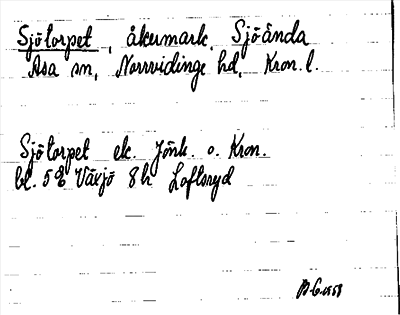 Sjötorpet, åkermark, Sjöända
Asa sn, Norrvidinge hd, Kron. l.
Sjötorpet ek. Jönk. o. Kron.
bl. 5 Växjö 8h Loftsryd